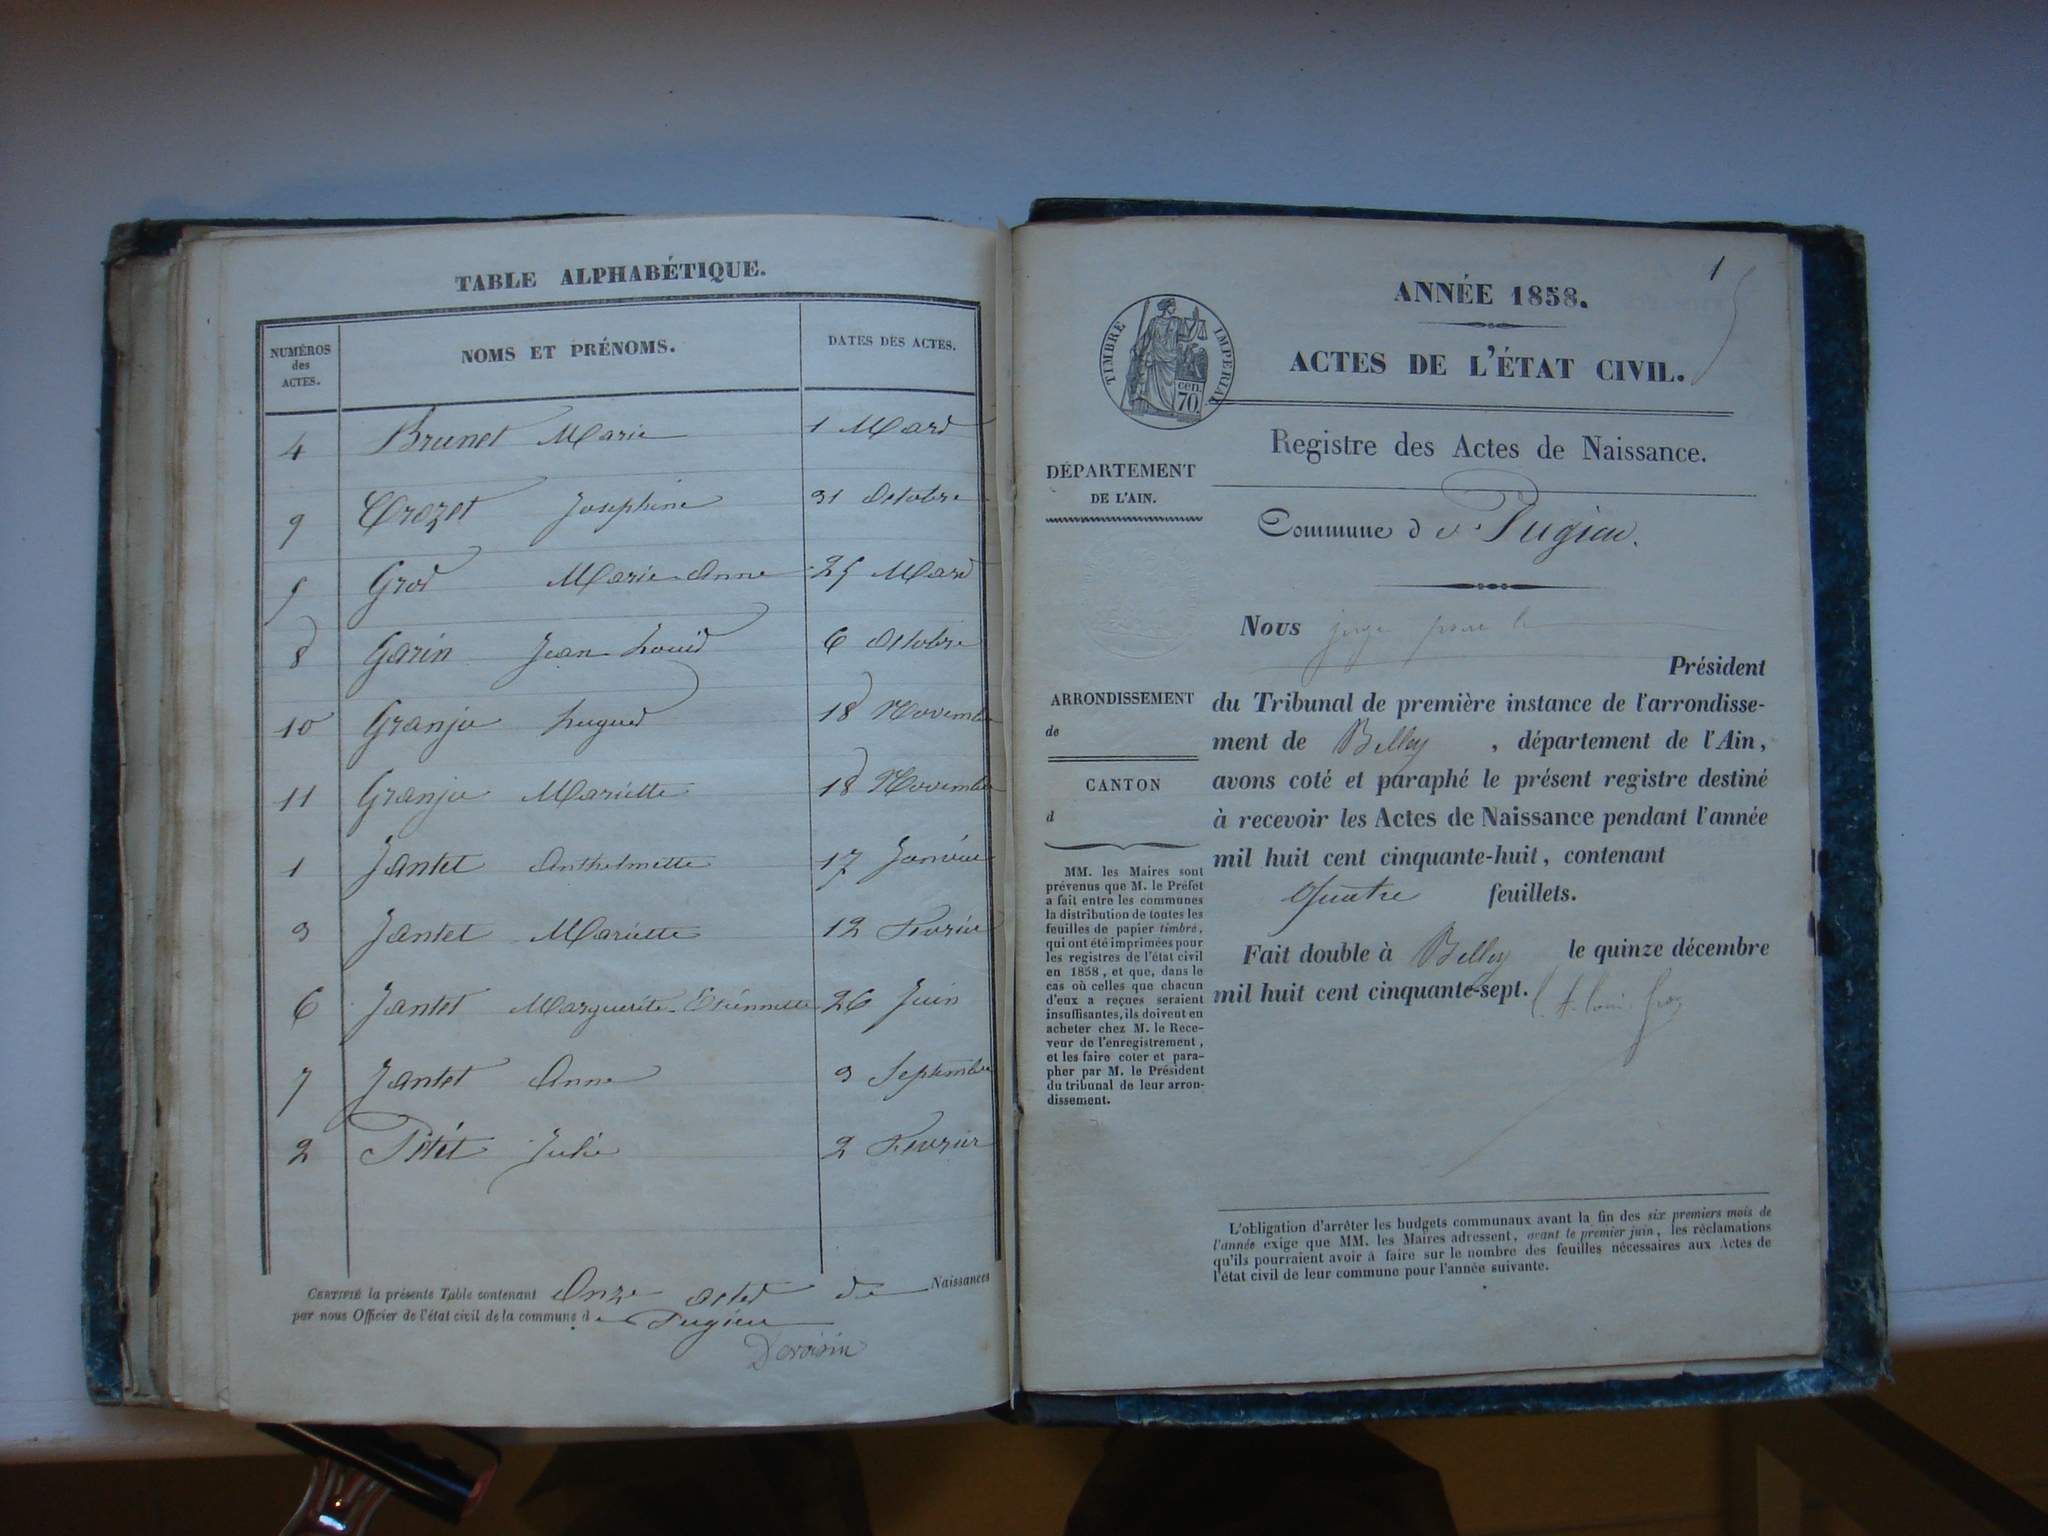 TABLE ALPHABÉTIQUE.
NUMÉROS des ACTES. NOMS ET PRÉNOMS. DATES DES ACTES.
4 Brunet Marie 1 Mars
9 Crozet Joséphine 31 Octobre
5 Gros Marie-Anne 25 Mars
8 Garin Jean Louis 6 Octobre
10 Granju hugues 18 Novembre
11 Granju Mariette 18 Novembre
1 Jantet Anthelmette 17 Janvier
3 Jantet Mariette 12 Fevrier
6 Jantet Marguerite-Etiennette 26 Juin
7 Jantet Anne 3 Septembre
2 Petit Julie 2 Fevrier
CERTIFIÉ la présente Table contenant Onze actes de Naissances
par nous Officier de l'état civil de la commune de Pugieu
Devoisin
1
ANNÉE 1858.
TIMBRE IMPÉRIAL
cen.
70.
ACTES DE L'ÉTAT CIVIL.
Registre des Actes de Naissance.
DÉPARTEMENT
DE L'AIN.
Commune de Pugieu.
Nous juge pour le
Président
ARRONDISSEMENT
de
CANTON
d
du Tribunal de première instance de l'arrondisse-
ment de Belley, département de l'Ain,
avons coté et paraphé le présent registre destiné
à recevoir les Actes de Naissance pendant l'année
mil huit cent cinquante-huit, contenant
Quatre feuillets.
Fait double à Belley le quinze décembre
mil huit cent cinquante-sept.
MM. les Maires sont
prévenus que M. le Préfet
a fait entre les communes
la distribution de toutes les
feuilles de papier timbré,
qui ont été imprimées pour
les registres de l'état civil
en 1858, et que, dans le
cas où celles que chacun
d'eux a reçues seraient
insuffisantes, ils doivent en
acheter chez M. le Rece-
veur de l'enregistrement,
et les faire coter et para-
pher par M. le Président
du tribunal de leur arron-
dissement.
L'obligation d'arrêter les budgets communaux avant la fin des six premiers mois de
l'année exige que MM. les Maires adressent, avant le premier juin, les réclamations
qu'ils pourraient avoir à faire sur le nombre des feuilles nécessaires aux Actes de
l'état civil de leur commune pour l'année suivante.